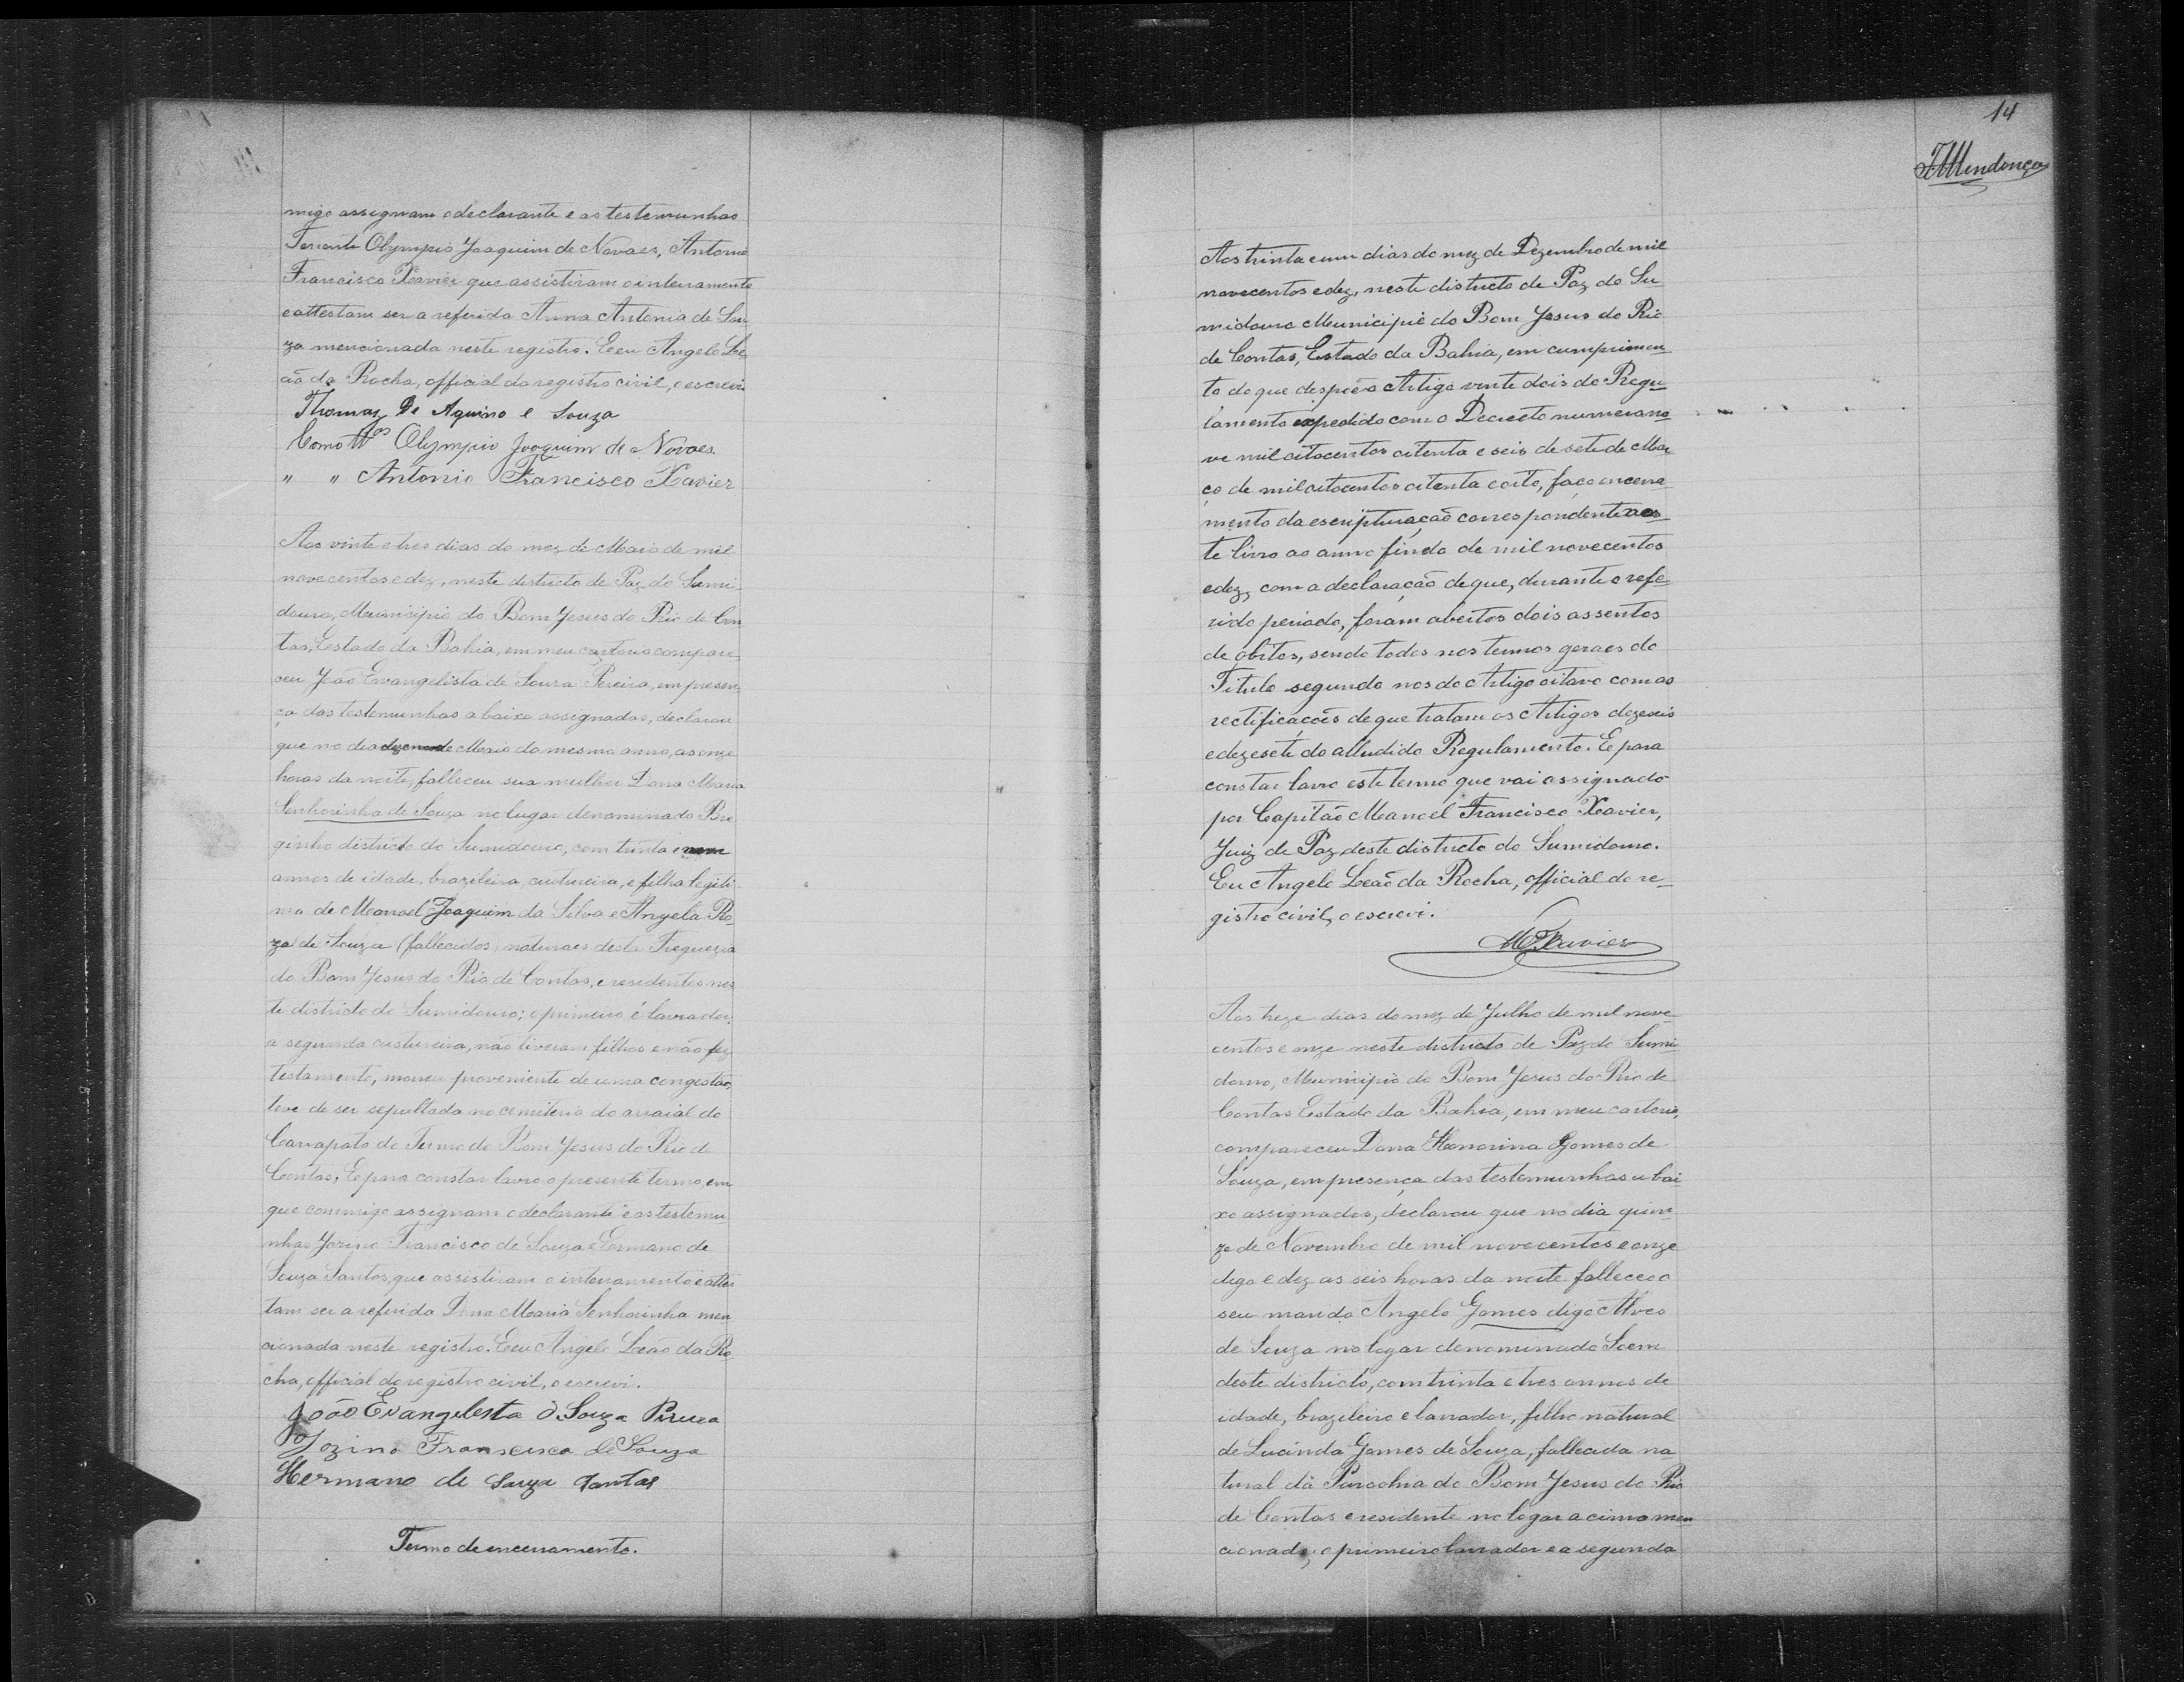 migo assignam o declarante e as testemunhas
Tenente Olympio Joaquim de Novaes, Antonio
Francisco Xavier que assistiram o interramento
e attestam ser a referida Anna Antonia de Sou
za mencionada neste registro. E eu Angelo Le
ão da Rocha, official do registro civil, o escrevi.
Thomaz De Aquino e Souza
Como ttas Olympio Joaquim de Novaes.
" " Antonio Francisco Xavier
Aos vinte e tres dias do mez de Maio de mil
nove centos e dez, neste districto de Paz do Sumi
douro, Municipio do Bom Jesus do Rio de Con
tas, Estado da Bahia, em meu cartorio compare
ceu João Evangelista de Souza Pereira, em presen
ça das testemunhas abaixo assignadas, declarou
que no dia de Maio do mesmo anno, as onze
horas da noite, falleceu sua mulher Dona Maria
Senhorinha de Souza no lugar denominado Bre
ginho districto do Sumidouro, com trinta e
annos de idade, brazileira, custureira, e filha legiti
ma de Manoel Joaquim da Silva e Angela Ro
za de Souza (fallecidos) naturaes desta Freguezia
do Bom Jesus do Rio de Contas, e residentes nes
te districto do Sumidouro; o primeiro é lavrador,
a segunda custureira, não tiveram filhos e não fez
testamento, morreu proveniente de uma congestão,
teve de ser sepultada no cemiterio do arraial do
Carrapato do Termo do Bom Jesus do Rio de
Contas, E para constar lavro o presente termo, em
que commigo assignam o declarante e as testemu
nhas Jozino Francisco de Souza e Ermano de
Souza Santos, que assistiram o interramento e attes
tam ser a referida Dona Maria Senhorinha men
cionada neste registro. E eu Angelo Leão da Ro
cha, official do registro civil, o escrevi.
João Evangelesta d Souza Pireira
Jozino Francisco de Souza
Hermano de Souza Santos
Termo de encerramento.
14
FMendonça
Aos trinta e um dias do mez de Dezembro de mil
novecentos e dez, neste districto de Paz do Su
midouro Municipio do Bom Jesus do Rio
de Contas, Estado da Bahia, em cumprimen
to do que despõe o Artigo vinte dois do Regu
lamento expedido com o Decreto numero no
ve mil oitocentos oitenta e seis de sete de Mar
ço de mil oitocentos oitenta e oito, faço encerra
mento da escripturação correspondente nes
te livro ao anno findo de mil novecentos
e dez, com a declaração de que, durante o refe
rido periodo, foram abertos dois assentos
de óbitos, sendo todos nos termos geraes do
Titulo segundo nos do Artigo oitavo com as
rectificações de que tratam os Artigos dezeseis
e dezesete do alludido Regulamento. E para
constar lavro este termo que vai assignado
por Capitão Manoel Francisco Xavier,
Juiz de Paz deste districto do Sumidouro.
Eu Angelo Leão da Rocha, official do re
gistro civil, o escrevi.
MFXavier
Aos treze dias do mez de Julho de mil nove
centos e onze neste districto de Paz do Sumi
douro, Municipio do Bom Jesus do Rio de
Contas Estado da Bahia, em meu cartorio,
compareceu Dona Honorina Gomes de
Souza, em presença das testemunhas abai
xo assignados, declarou que no dia quin
ze de Novembro de mil novecentos e onze
digo e dez as seis horas da noite falleceo o
seu marido Angelo Gomes digo Alves
de Souza no logar denominado Soem
deste districto, com trinta e tres annos de
idade, brazileiro e lavrador, filho natural
de Lucinda Gomes de Souza, fallecida na
tural da Parochia do Bom Jesus do Rio
de Contas e residente no logar acima men
cionado; o primeiro lavrador e a segunda